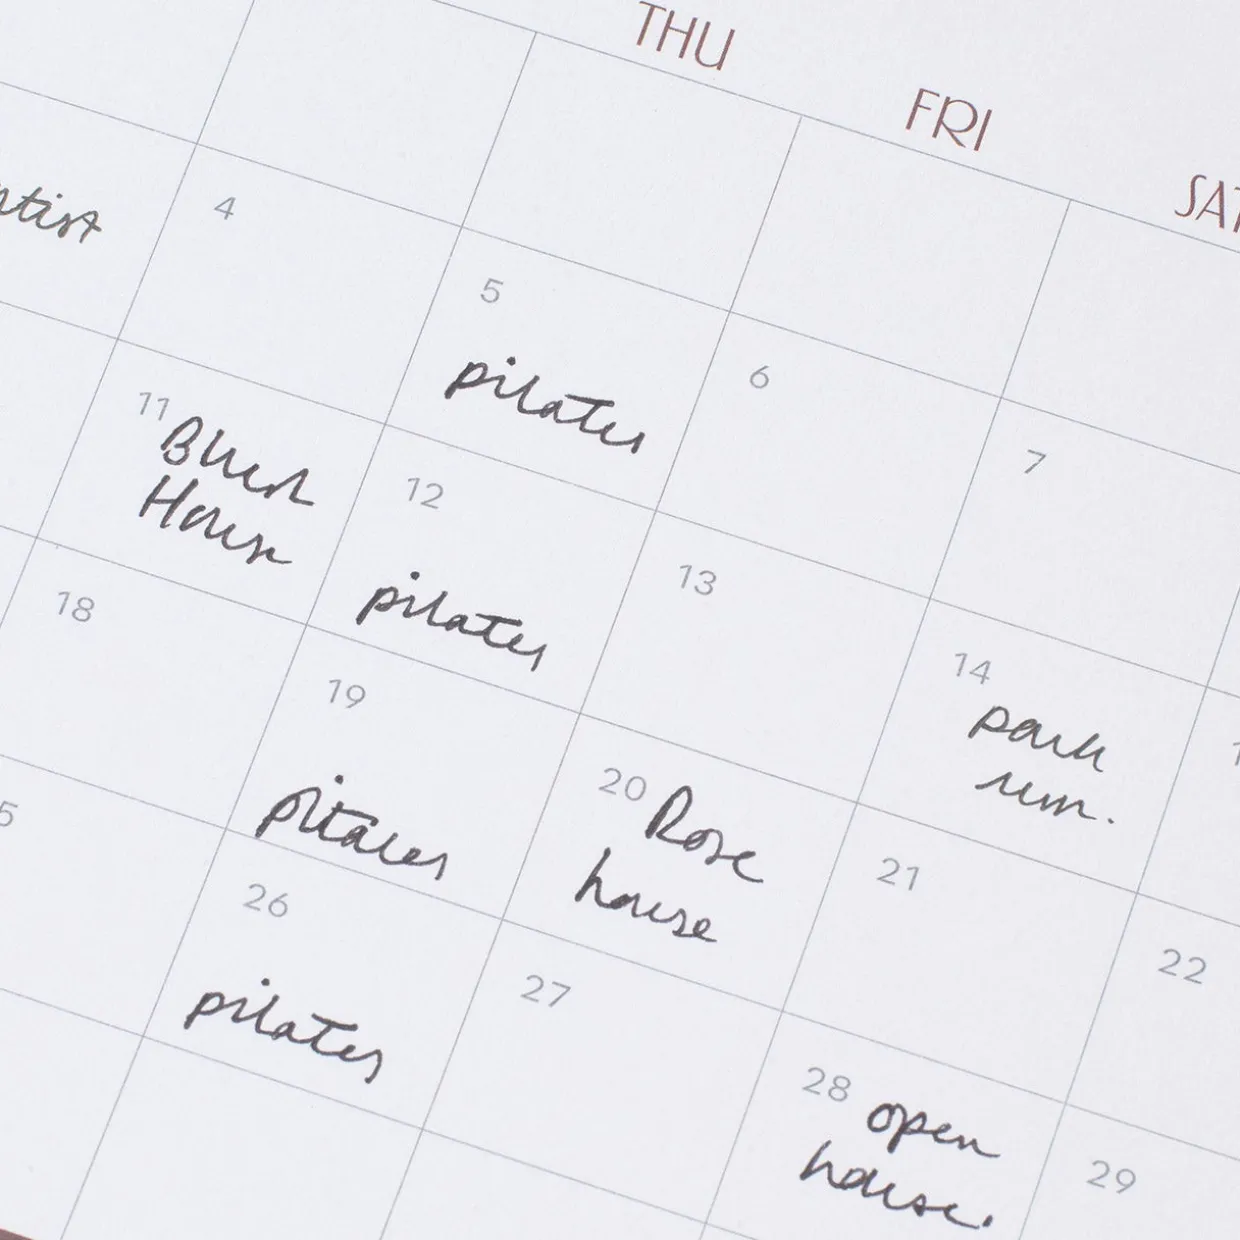 THU
FRI
SAT
4
5
pilates
6
7
11
House
12
pilates
13
14
park
run.
18
19
pilates
20 Rose
house
21
22
26
pilates
27
28 open
house.
29